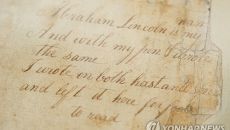 Abraham Lincoln is my nam
And with my pen I wrote
the same
I wrote on both hast and
and left it here for fools
to read
YONHAP NEWS